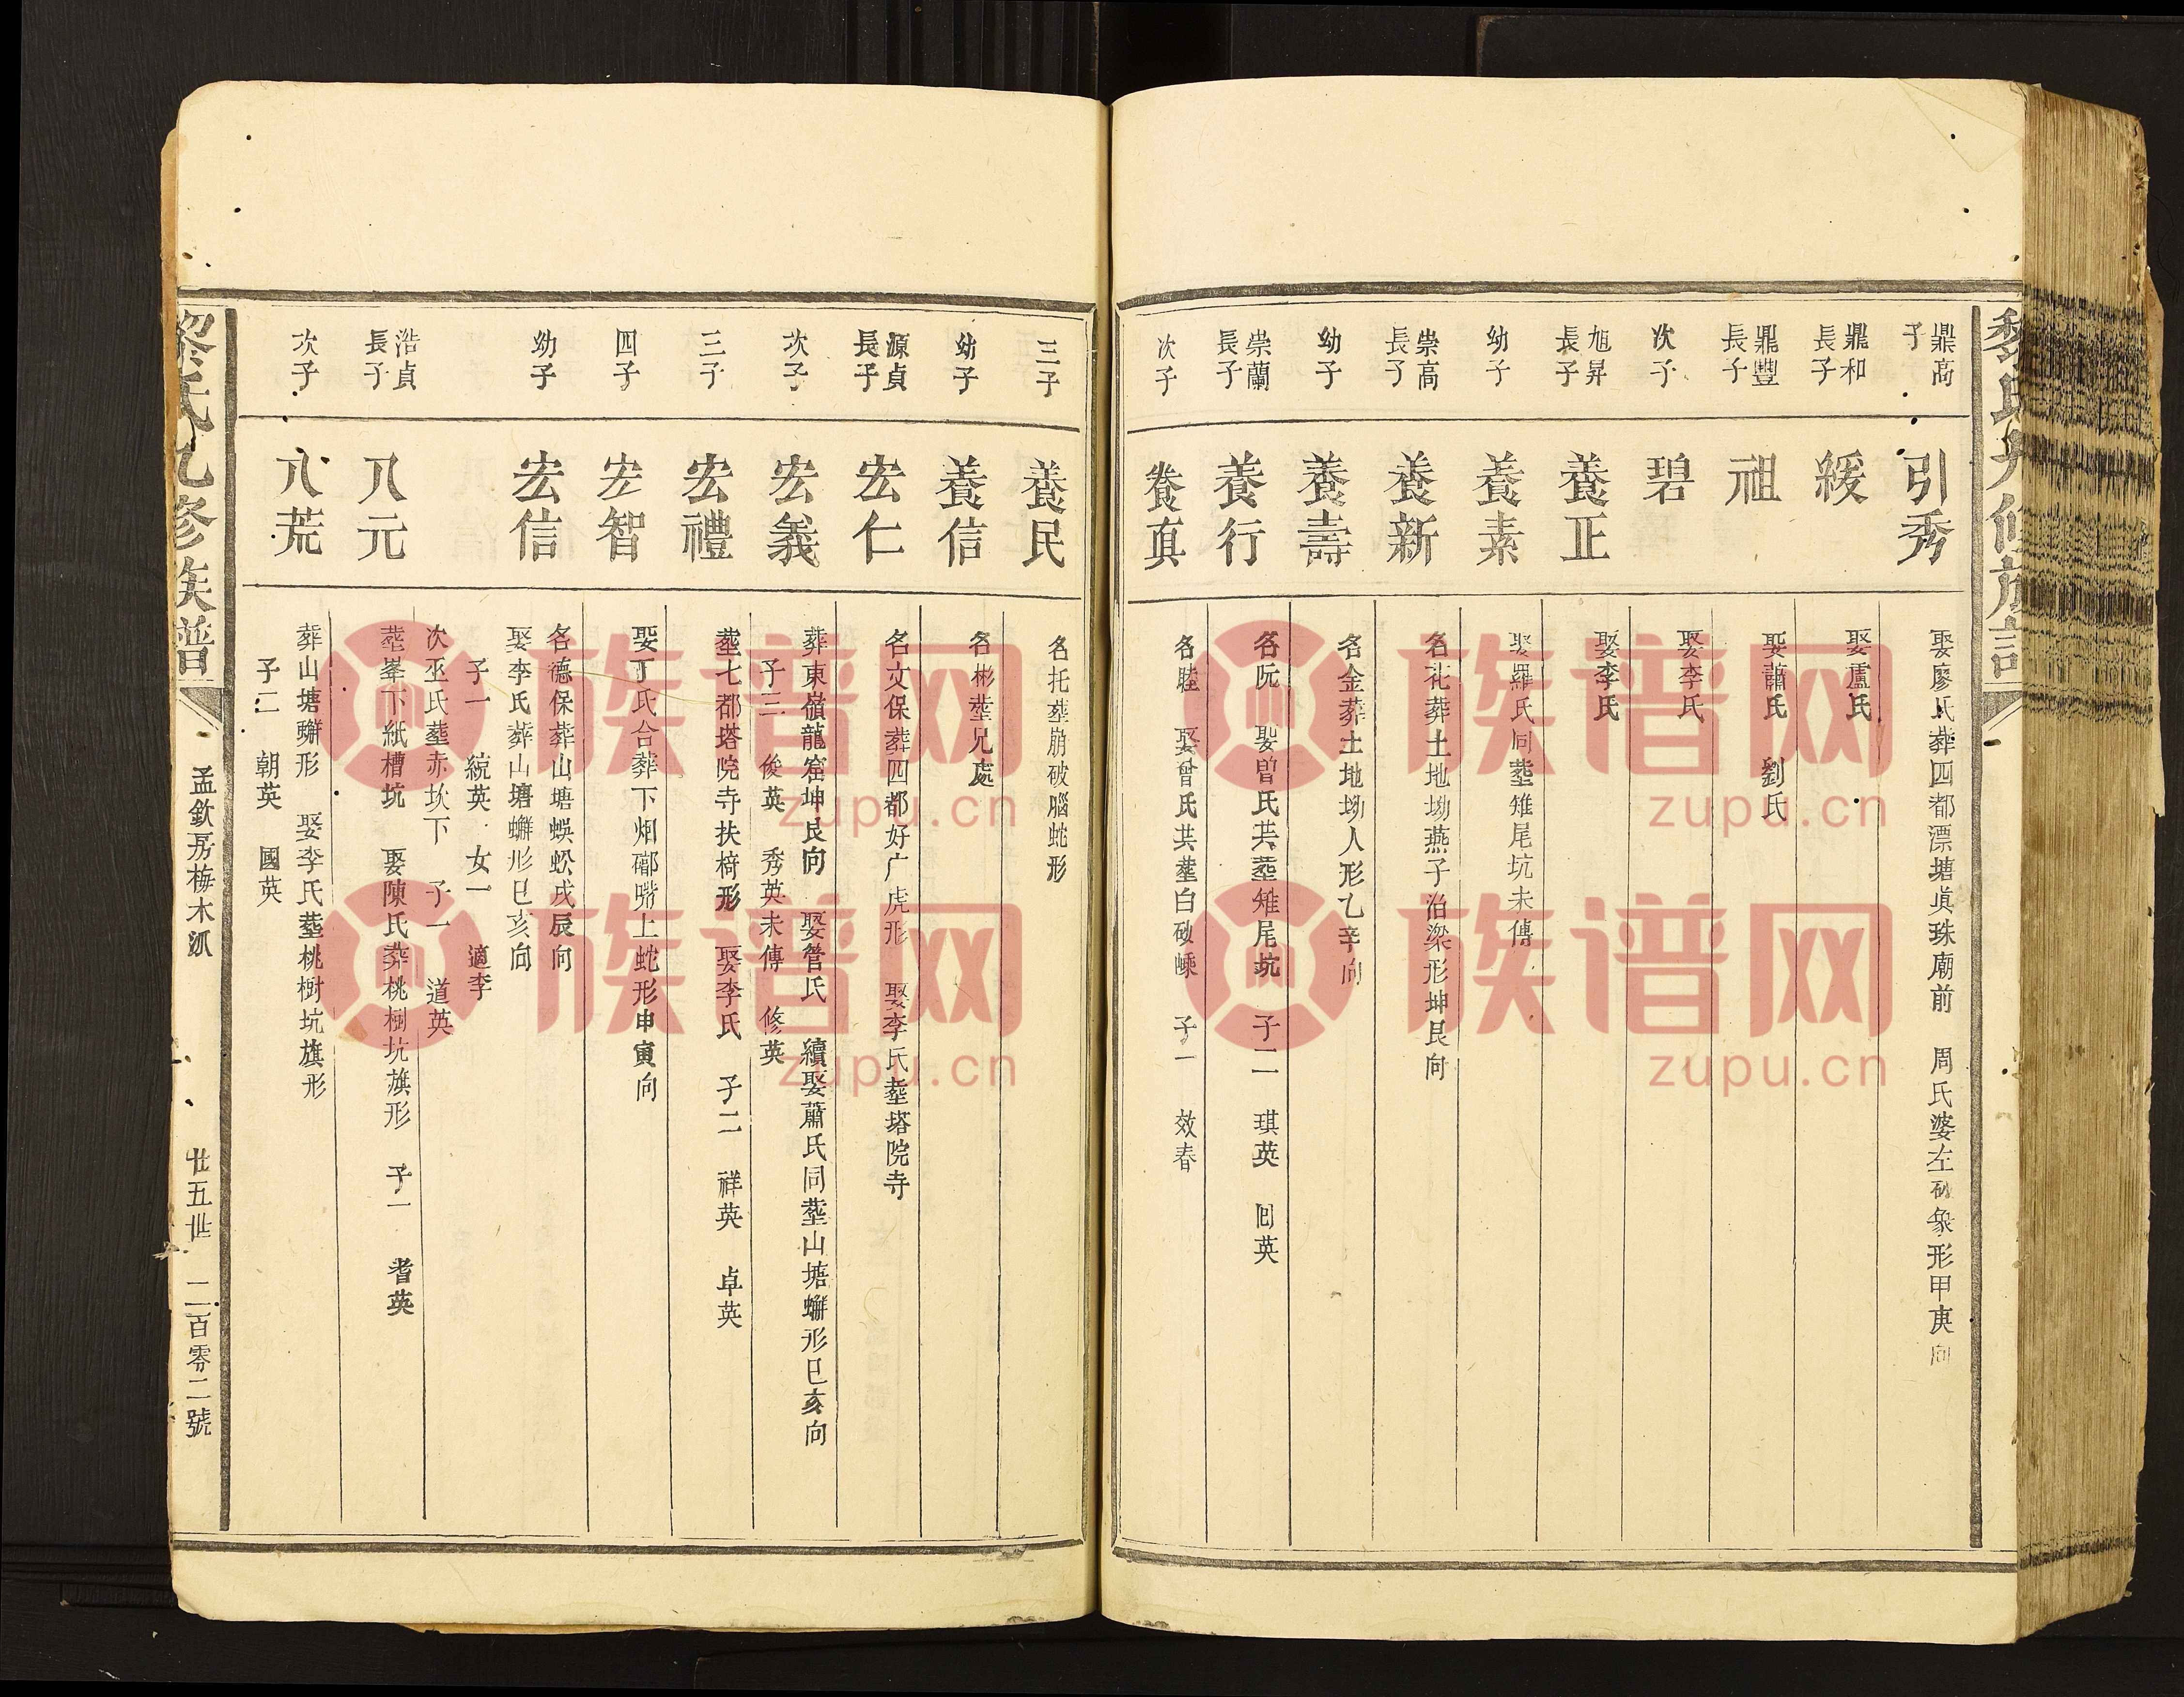 鼎高
子
引秀
娶廖氏葬四都漂塘真珠廟前 周氏婆左砂象形甲庚向
鼎和
長子
綬
娶盧氏
鼎豐
長子
祖
娶蕭氏 劉氏
次子
碧
娶李氏
旭昇
長子
養正
娶李氏
幼子
養素
娶羅氏同塟雉尾坑未傳
崇高
長子
養新
名花葬土地坳燕子泊梁形坤艮向
幼子
養壽
名金葬土地坳人形乙辛向
崇蘭
長子
養行
名阮 娶曾氏共塟雉尾坑 子二 琪英 回英
次子
養真
名睦 娶曾氏共塟白砂嵊 子一 效春
三子
養民
名托塟崩破腦蛇形
幼子
養信
名彬塟兄處
源貞
長子
宏仁
名文保葬四都好广虎形 娶李氏塟塔院寺
次子
宏義
葬東嶺龍窟坤艮向 娶管氏 續娶蕭氏同塟山塘蠏形巳亥向
子三 俊英 秀英未傳 修英
三子
宏禮
塟七都塔院寺扶椅形 娶李氏 子二 祥英 卓英
四子
宏智
娶丁氏合葬下畑鄘嘴上蛇形申寅向
幼子
宏信
名德保葬山塘蜈蚣戌辰向
娶李氏葬山塘蠏形巳亥向
子一 統英 女一 適李
次巫氏塟赤坎下 子一 道英
浩貞
長子
八元
塟峯下紙槽坑 娶陳氏葬桃樹坑旗形 子一 耆英
次子
八荒
葬山塘蠏形 娶李氏塟桃樹坑旗形
子二 朝英 國英
黎氏九修族譜
孟欽房梅木派
廿五世
二百零二號
族谱网
zupu.cn
族谱网
zupu.cn
族谱网
zupu.cn
族谱网
zupu.cn